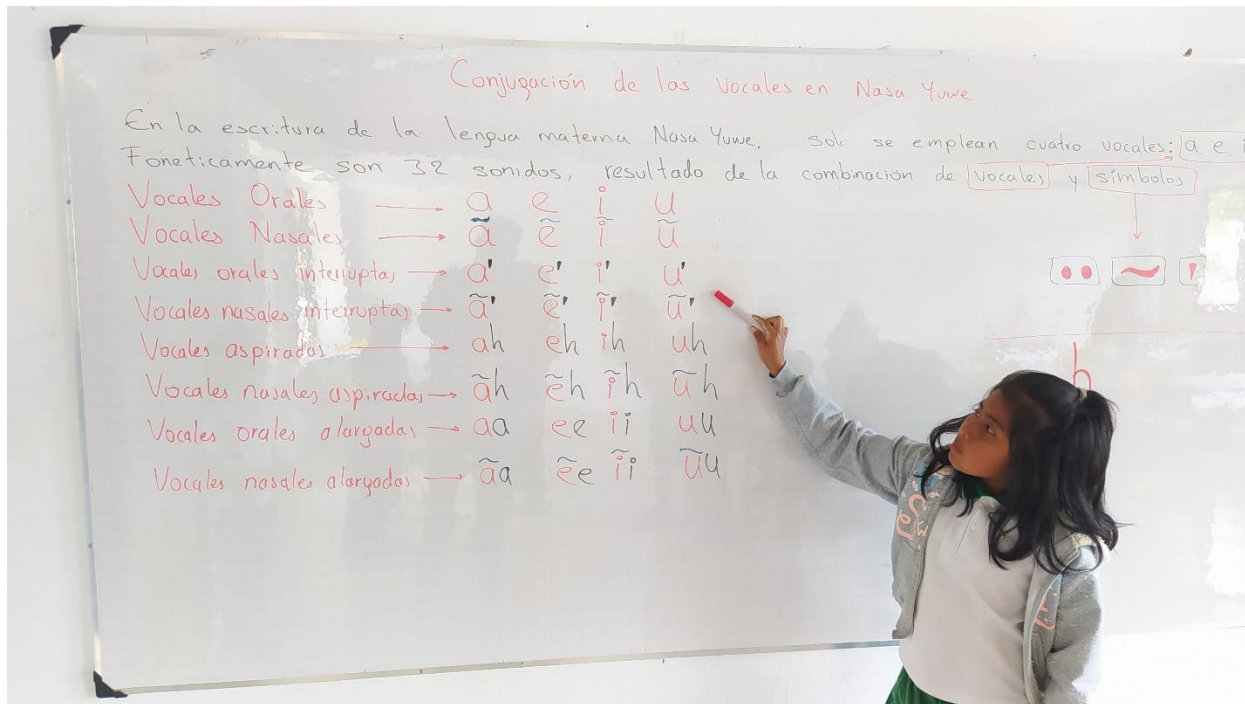 Conjugación de las Vocales en Nasa Yuwe
En la escritura de la lengua materna Nasa Yuwe, solo se emplean cuatro vocales: a, e, i
Foneticamente son 32 sonidos, resultado de la combinación de vocales y símbolos.
Vocales Orales → a e i u
Vocales Nasales → ã ẽ ĩ ũ
Vocales orales interruptas → a' e' i' u'
Vocales nasales interruptas → ã' ẽ' ĩ' ũ'
Vocales aspiradas → ah eh ih uh
Vocales nasales aspiradas → ãh ẽh ĩh ũh
Vocales orales alargadas → aa ee ii uu
Vocales nasales alargadas → ãa ẽe ĩi ũu
•• ~ '
h